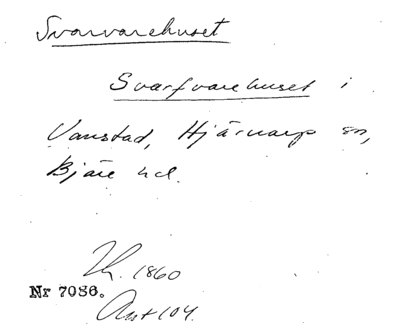 Svarvarehuset
Svarfvarehuset i
Vanstad, Hjärnarp sn,
Bjäre hd.
1860
Nr 7086.
Ant 104.